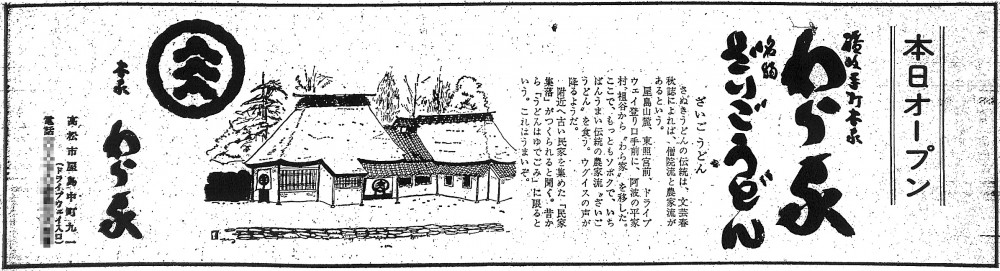 本日オープン
讃岐手打本家
わら家
名物
ざいごうどん
ざいごうどん
さぬきうどんの伝統は、文芸春
秋誌によれば、僧院流と農家流が
あるという。
屋島山麓、東照宮前、ドライブ
ウェイ登り口手前に、阿波の平家
村、祖谷から〝わら家〟を移した。
ここで、もっともソボクで、いち
ばんうまい伝統の農家流〝ざいご
うどん〟を食う。ウグイスの声が
降るようだ。
附近へ古い民家を集めた「民家
集落」がつくられると聞く。昔か
ら「うどんはゆでごみ」に限ると
いう。これはうまいぞ。
本家
わら家
高松市屋島中町九一
(ドライブウェイ入口)
電話